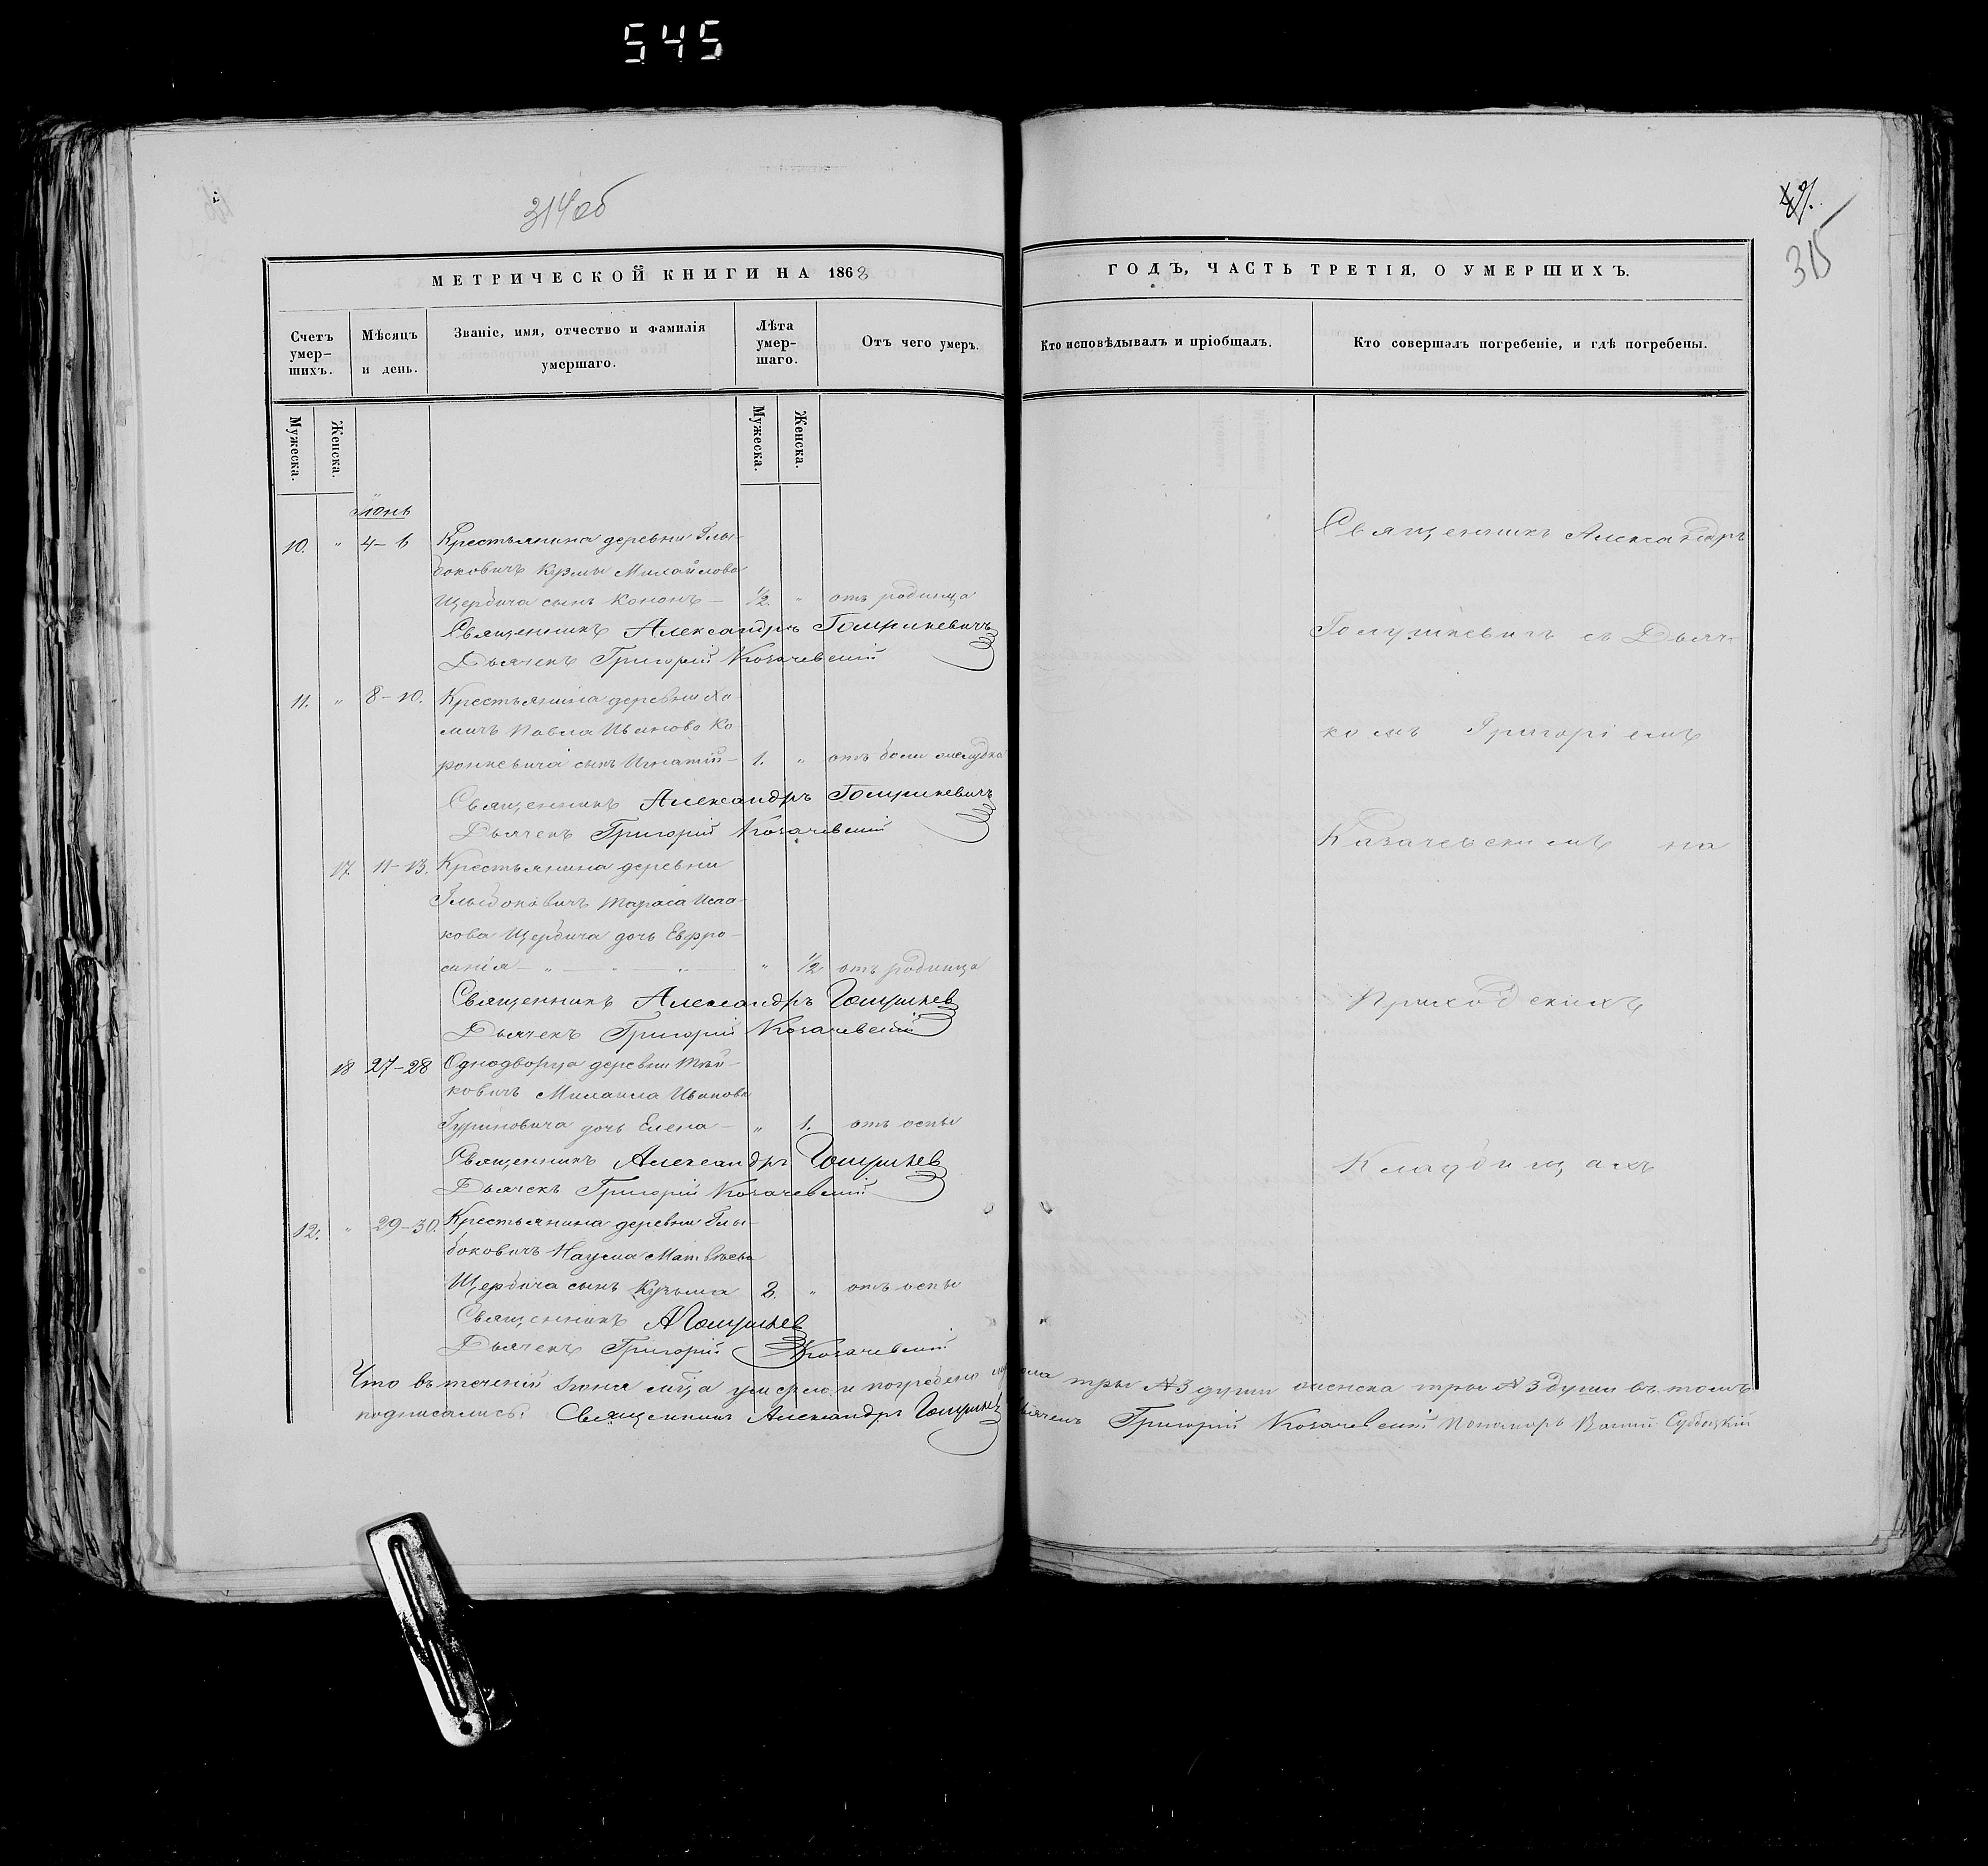 545
314об
315
МЕТРИЧЕСКОЙ КНИГИ НА 1868
ГОДЪ, ЧАСТЬ ТРЕТІЯ, О УМЕРШИХЪ.
Счетъ умер-шихъ.
Мѣсяцъ и день.
Званіе, имя, отчество и фамилія умершаго.
Лѣта умер-шаго.
Отъ чего умеръ.
Кто исповѣдывалъ и пріобщалъ.
Кто совершалъ погребеніе, и гдѣ погребены.
Мужеска.
Женска.
Мужеска.
Женска.
Іюнь
10. " 4–6 Крестьянина деревни Глы-
боковичъ Кузмы Михайлова
Щербича сынъ Кононъ – 1/2. " отъ родимца
Священникъ Александръ Гомулкевичъ
Дьячекъ Григорій Козачевскій
11. " 8–10. Крестьянина деревни Хо-
мичъ Павла Иванова Ко-
ронкевича сынъ Игнатій – 1. " отъ боли желудка
Священникъ Александръ Гомулкевичъ
Дьячекъ Григорій Козачевскій
17. 11–13. Крестьянина деревни
Глыбоковичъ Тараса Исаа-
кова Щербича дочь Евфро-
синія – " – " – " – " 1/2 отъ родимца
Священникъ Александръ
Дьячекъ Григорій Козачевскій
18 27–28 Однодворца деревни
ковичъ Михаила Иванова
Гуриновича дочь Елена – " 1. отъ оспы
Священникъ Александръ
Дьячекъ Григорій Козачевскій
12. " 29–30. Крестьянина деревни Глы-
боковичъ Наума Матвѣева
Щербича сынъ Кузьма 2. " отъ оспы
Священникъ
Дьячекъ Григорій Козачевскій
Священникъ Александръ
съ Дьяч-
комъ Григоріемъ
Казачевскимъ на
Приходскихъ
Кладбищахъ
Что въ теченіи Іюня мѣца умерло и погребено мужеска три №3 души женска три №3 души въ томъ
подписались: Священникъ Александръ Дьячекъ Григорій Козачевскій Пономарь